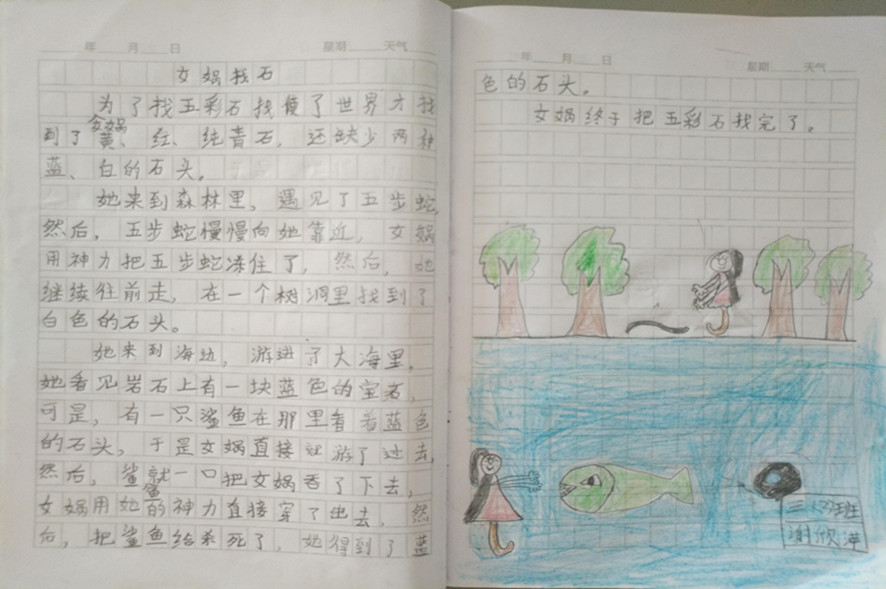 年 月 日 星期 天气
女娲找石
为了找五彩石找便了世界才找
女娲
到了黄、红、纯青石，还缺少两种
蓝、白的石头。
她来到森林里，遇见了五步蛇，
然后，五步蛇慢慢向她靠近，女娲
用神力把五步蛇冻住了，然后，她
继续往前走，在一个树洞里找到了
白色的石头。
她来到海边，游进了大海里，
她看见岩石上有一块蓝色的宝石，
可是，有一只鲨鱼在那里看着蓝色
的石头，于是女娲直接就游了过去，
然后，鲨就一口把女娲吞了下去，
女娲用她的神力直接穿了出去，然
后，把鲨鱼给杀死了，她得到了蓝
年 月 日 星期 天气
色的石头。
女娲终于把五彩石找完了。
班
谢欣